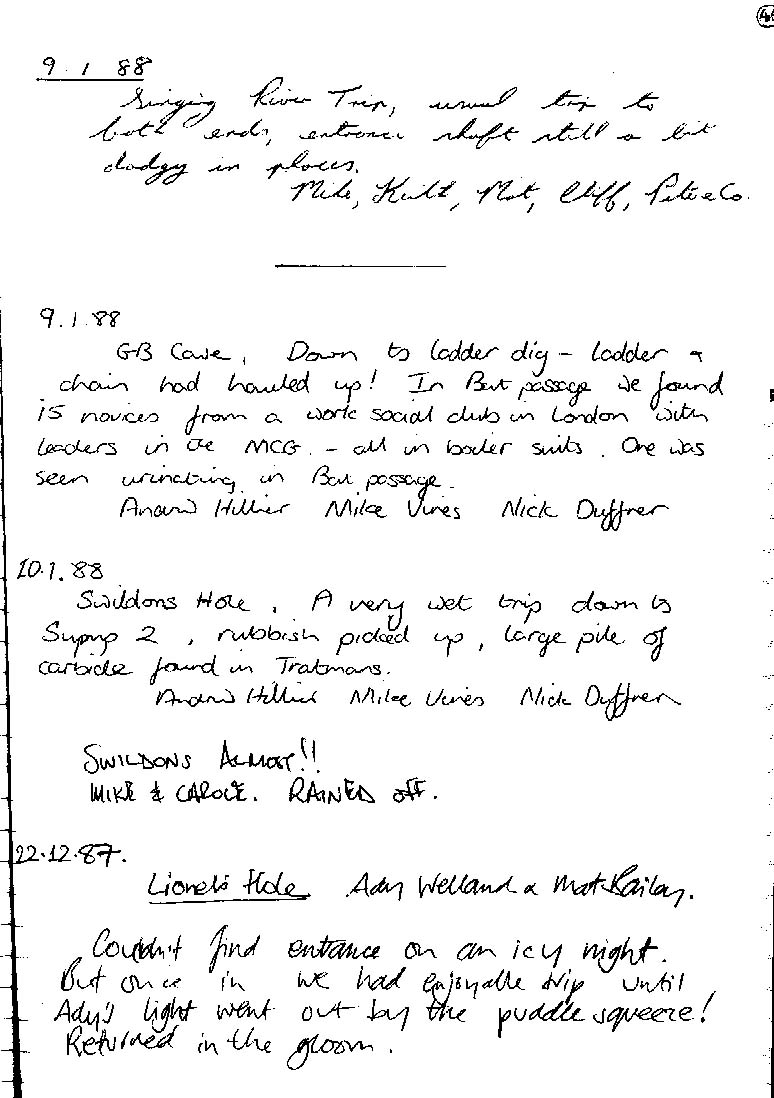 9.1.88
Singing River Trip, usual trip to
both ends, entrance shaft still a bit
dodgy in places.
Mike, Keith, Mat, Cliff, Pete & Co.
9.1.88
GB Cave, Down to ladder dig - ladder &
chain had hauled up! In Bat passage we found
15 novices from a work social club in London with
leaders in the MCG. - all in boiler suits. One was
seen urinating in Bat passage.
Hillier Mike Vines Nick Duffner
10.1.88
Swildons Hole, A very wet trip down to
Sump 2, rubbish picked up, large pile of
carbide found in Tratmans.
Hillier Mike Vines Nick Duffner
SWILDONS ALMOST!!
MIKE & CAROLE. RAINED OFF.
22.12.87.
Lionel's Hole Ady Welland & Mat
Couldn't find entrance on an icy night.
But once in we had enjoyable trip until
Ady's light went out by the puddle squeeze!
Returned in the gloom.